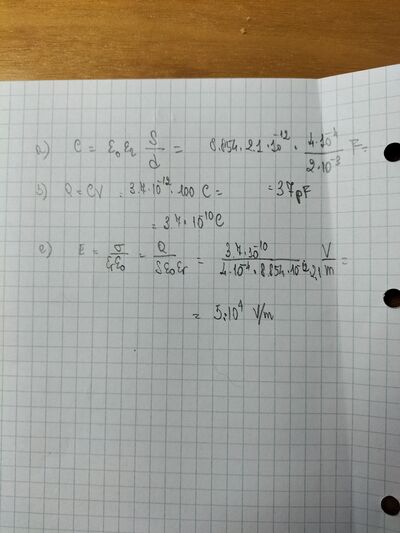 a) C = ε₀ εr S/d = 8.854 · 2.1 · 10⁻¹² · 4·10⁻⁴/2·10⁻³ F =
b) Q = CV = 3.7·10⁻¹² · 100 C = = 3.7 pF
= 3.7 · 10¹⁰ C
c) E = σ/εrε₀ = Q/Sε₀εr = 3.7·10⁻¹⁰/4·10⁻⁴ · 8.854·10⁻¹² · 2,1 V/m =
= 5·10⁴ V/m